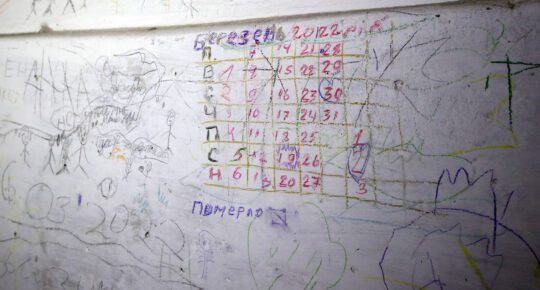 Березень 2022 р
П 7 14 21 28
В 1 8 15 22 29
С 2 9 16 23 30
Ч 3 10 17 24 31
П 4 11 18 25 1
С 5 12 19 26 2
Н 6 13 20 27 3
Померло
03 20